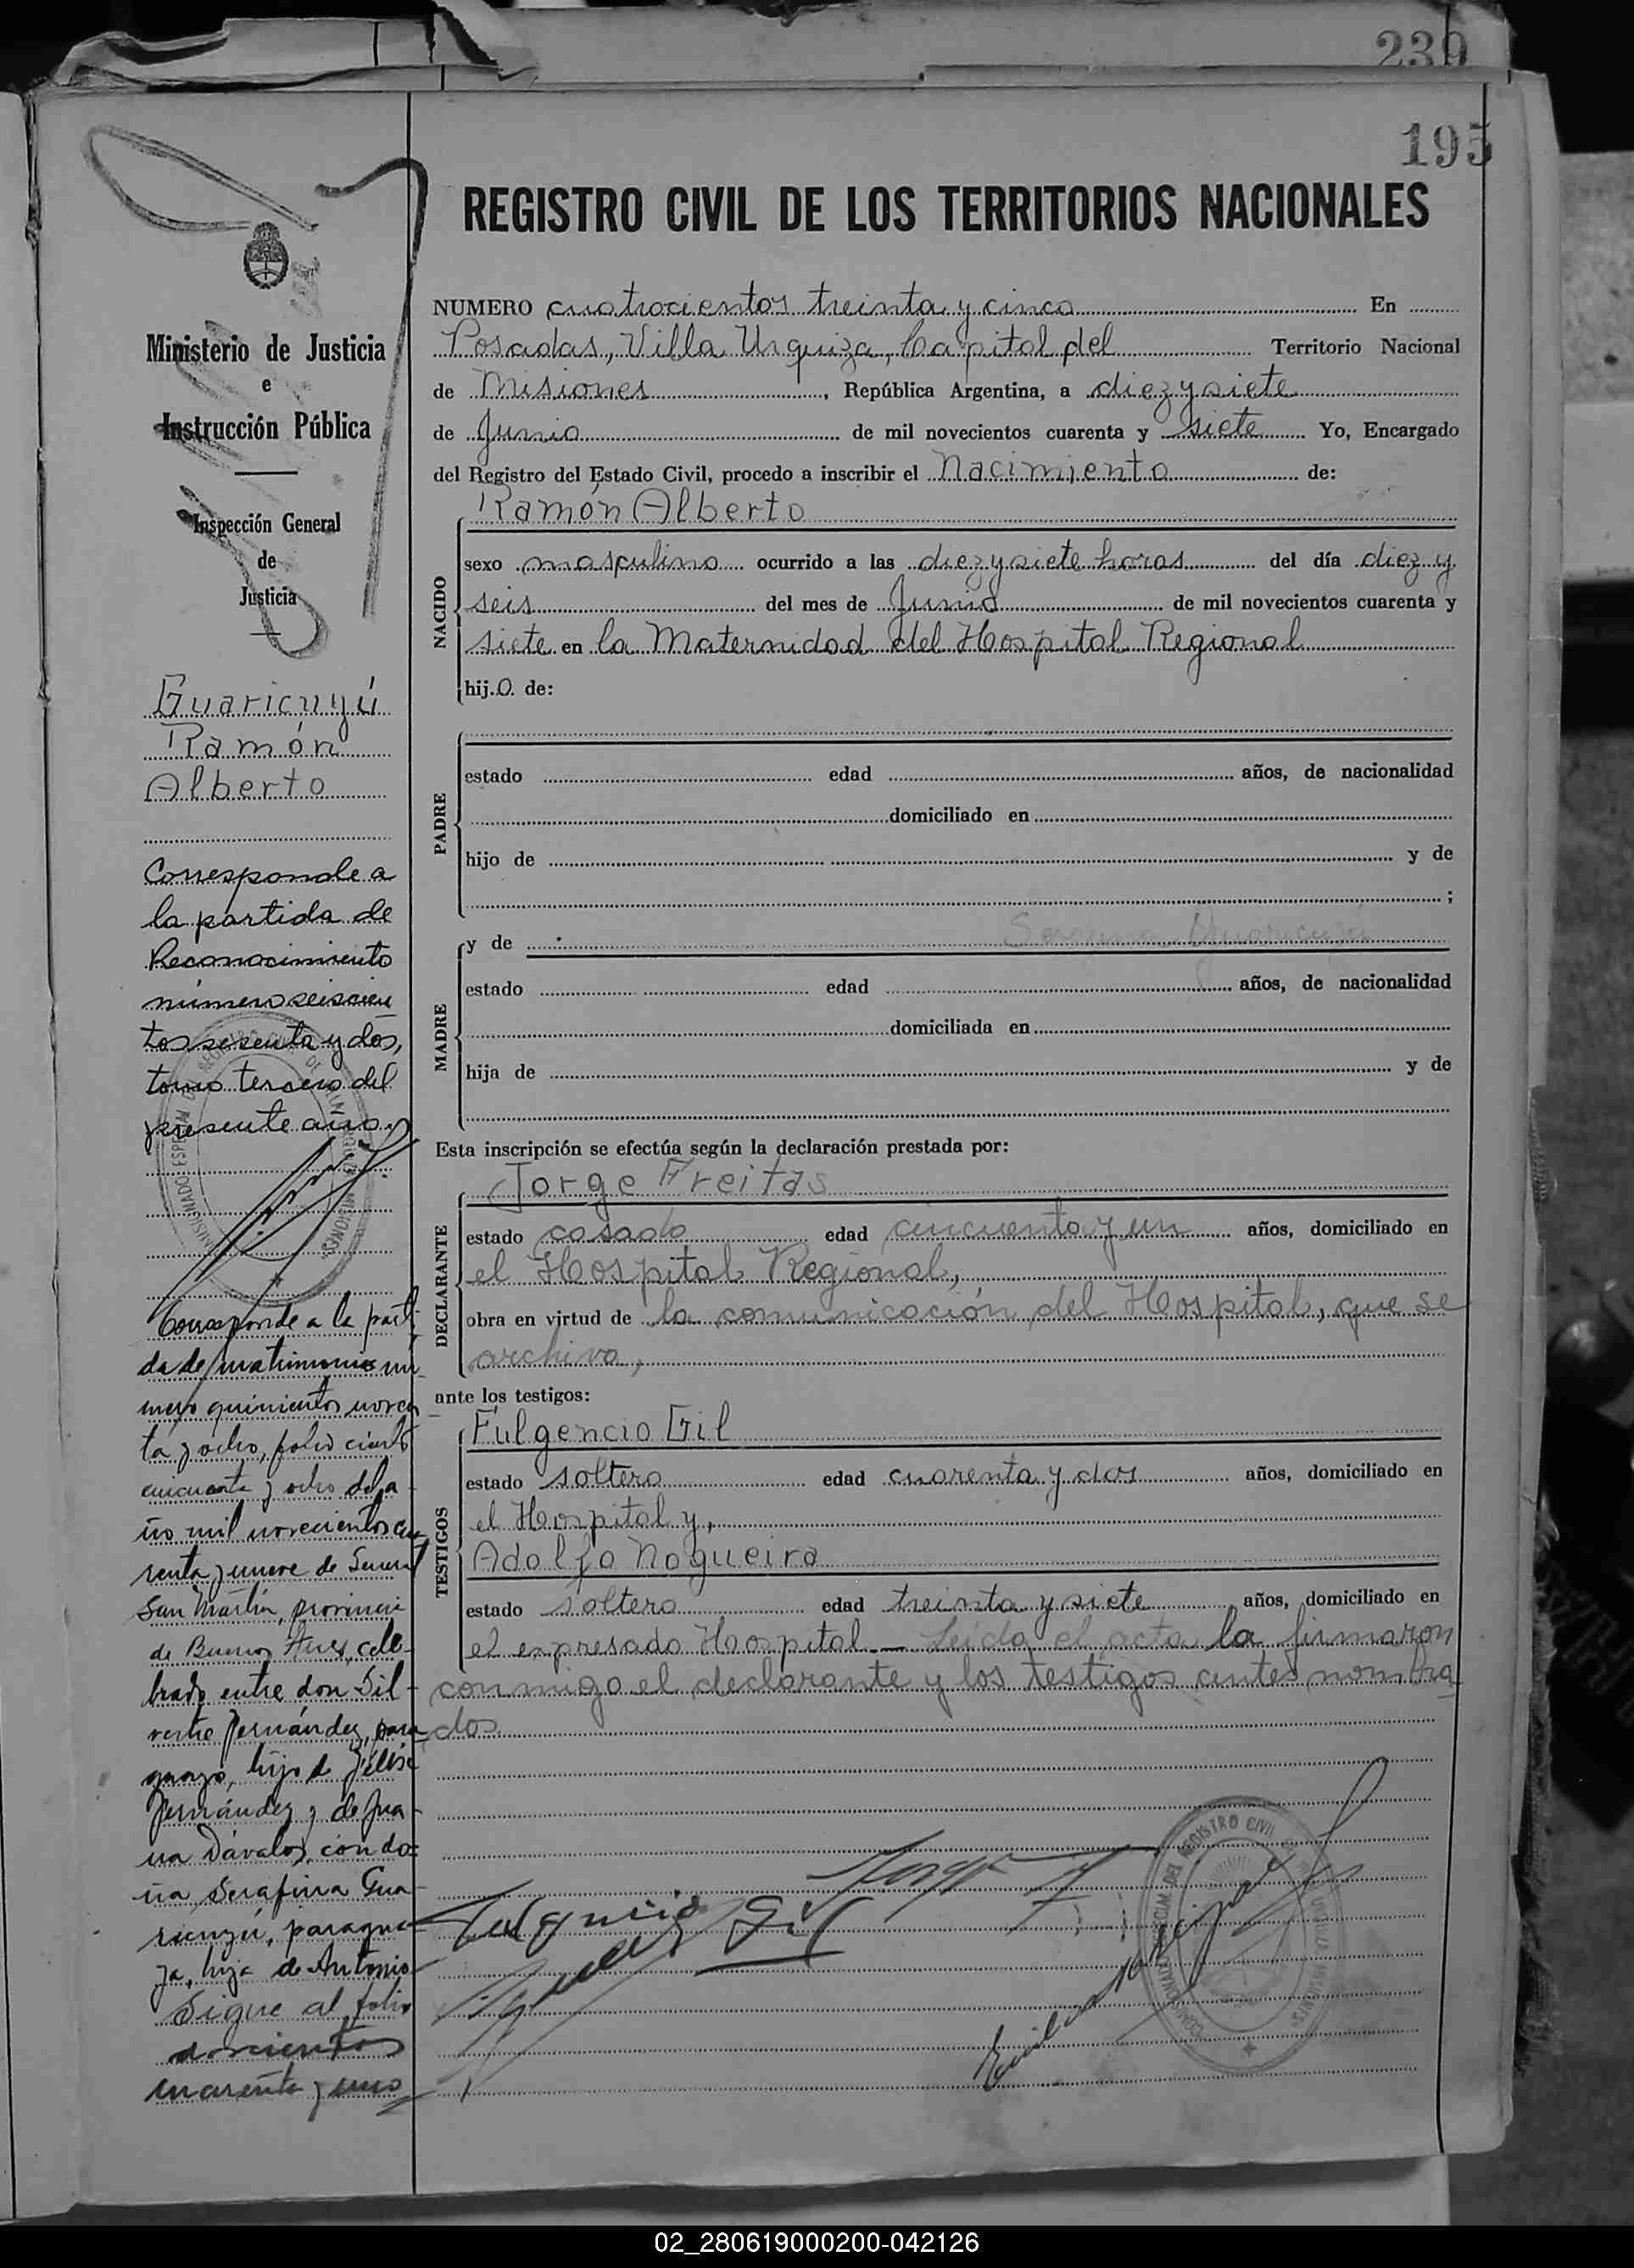 239
195
REGISTRO CIVIL DE LOS TERRITORIOS NACIONALES
Ministerio de Justicia
e
Instrucción Pública
Inspección General
de
Justicia
Guaricuyú
Ramón
Alberto
Corresponde a
la partida de
Reconocimiento
número seiscien
tos sesenta y dos,
tomo tercero del
presente año.
Corresponde a la parti
da de matrimonio nú
mero quinientos noven
ta y ocho, folio ciento
cincuenta y ocho del a
ño mil novecientos cua
renta y nueve de General
San Martín, provincia
de Buenos Aires, cele-
brado entre don Sil-
vestre Fernández, para
guayo, hijo de
Fernández y de Jua-
na Dávalos, con do-
ña Serafina Gua-
ricuyú, paragua-
ya, hija de Antonio
Sigue al folio
doscientos
cuarenta y uno
NUMERO cuatrocientos treinta y cinco En
Posadas, Villa Urquiza, Capital del Territorio Nacional
de Misiones, República Argentina, a diez y siete
de Junio de mil novecientos cuarenta y siete Yo, Encargado
del Registro del Estado Civil, procedo a inscribir el Nacimiento de:
Ramón Alberto
NACIDO
sexo masculino ocurrido a las diez y siete horas del día diez y
seis del mes de Junio de mil novecientos cuarenta y
siete en la Maternidad del Hospital Regional
hijo de:
PADRE
estado edad años, de nacionalidad
domiciliado en
hijo de y de
;
MADRE
y de Serafina Guaricuyú
estado edad años, de nacionalidad
domiciliada en
hija de y de
Esta inscripción se efectúa según la declaración prestada por:
Jorge Freitas
DECLARANTE
estado casado edad cincuenta y un años, domiciliado en
el Hospital Regional,
obra en virtud de la comunicación del Hospital, que se
archiva,
ante los testigos:
Fulgencio Gil
TESTIGOS
estado soltero edad cuarenta y dos años, domiciliado en
el Hospital y,
Adolfo Nogueira
estado soltero edad treinta y siete años, domiciliado en
el expresado Hospital.— Leida el acta la firmaron
conmigo el declarante y los testigos antes nombra
dos
Fulgencio Gil
02_280619000200-042126